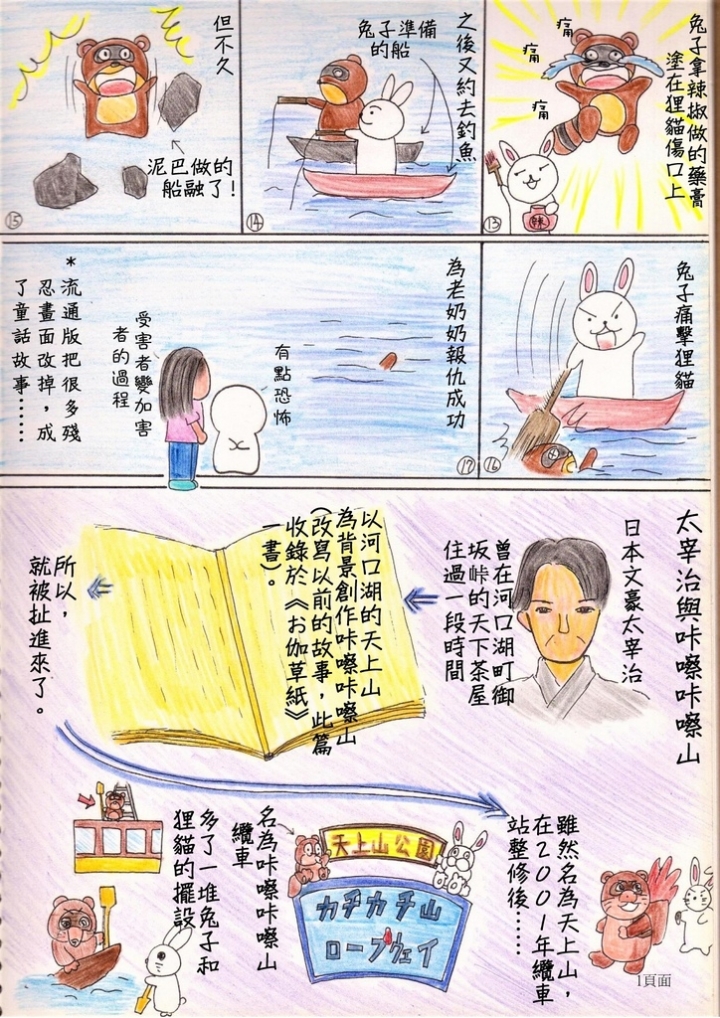 兔子拿辣椒做的藥膏
塗在狸貓傷口上
痛
痛
痛
⑬
之後又約去釣魚
兔子準備
的船
⑭
但不久
泥巴做的
船融了!
⑮
兔子痛擊狸貓
⑯
為老奶奶報仇成功
有點恐怖
受害者變加害
者的過程
*流通版把很多殘
忍畫面改掉，成
了童話故事……
⑰
太宰治與咔嚓咔嚓山
日本文豪太宰治
曾在河口湖町御
坂峠的天下茶屋
住過一段時間
以河口湖的天上山
為背景創作咔嚓咔嚓山
(改寫以前的故事，此篇
收錄於《お伽草紙》
一書)。
所以，
就被扯進來了。
雖然名為天上山，
在2001年纜車
站整修後……
天上山公園
カチカチ山
ロープウェイ
名為咔嚓咔嚓山
纜車
多了一堆兔子和
狸貓的擺設
1頁面